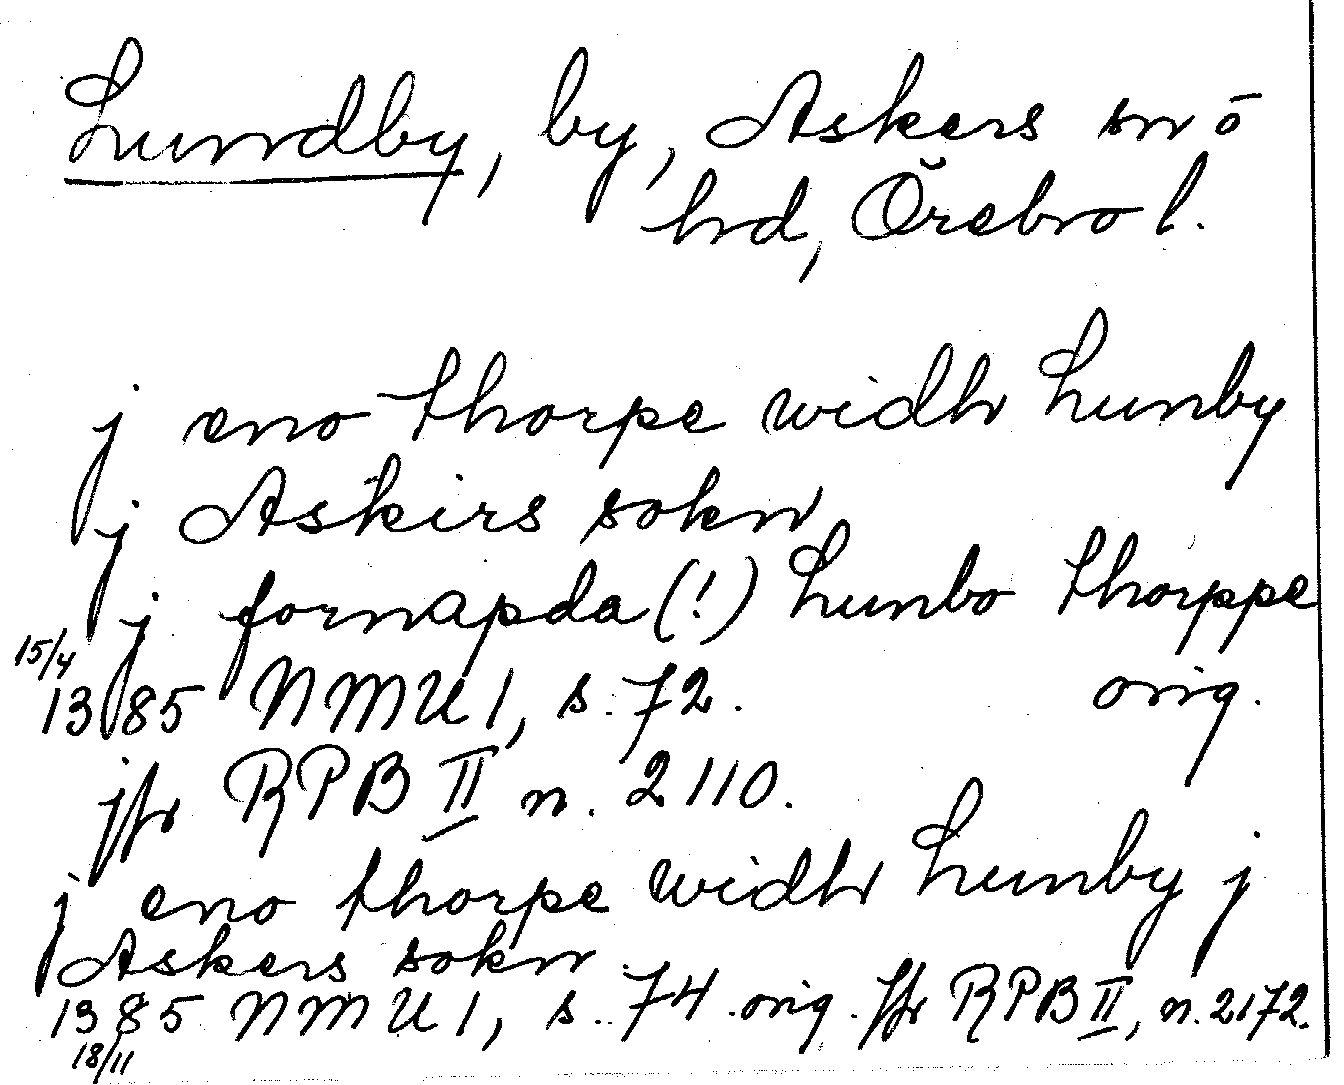 Lundby, by, Askers sn ō
hd, Örebro l.
j eno thorpe widh Lunby
j Askirs sokn
j fornapda (!) Lunbo thorppe
15/4
1385 NMU 1, s. 72. orig.
jfr RPB II n. 2110.
j eno thorpe widh Lunby j
Askers sokn.
1385 NMU 1, s. 74 orig. Jfr RPB II, n. 2172.
18/11